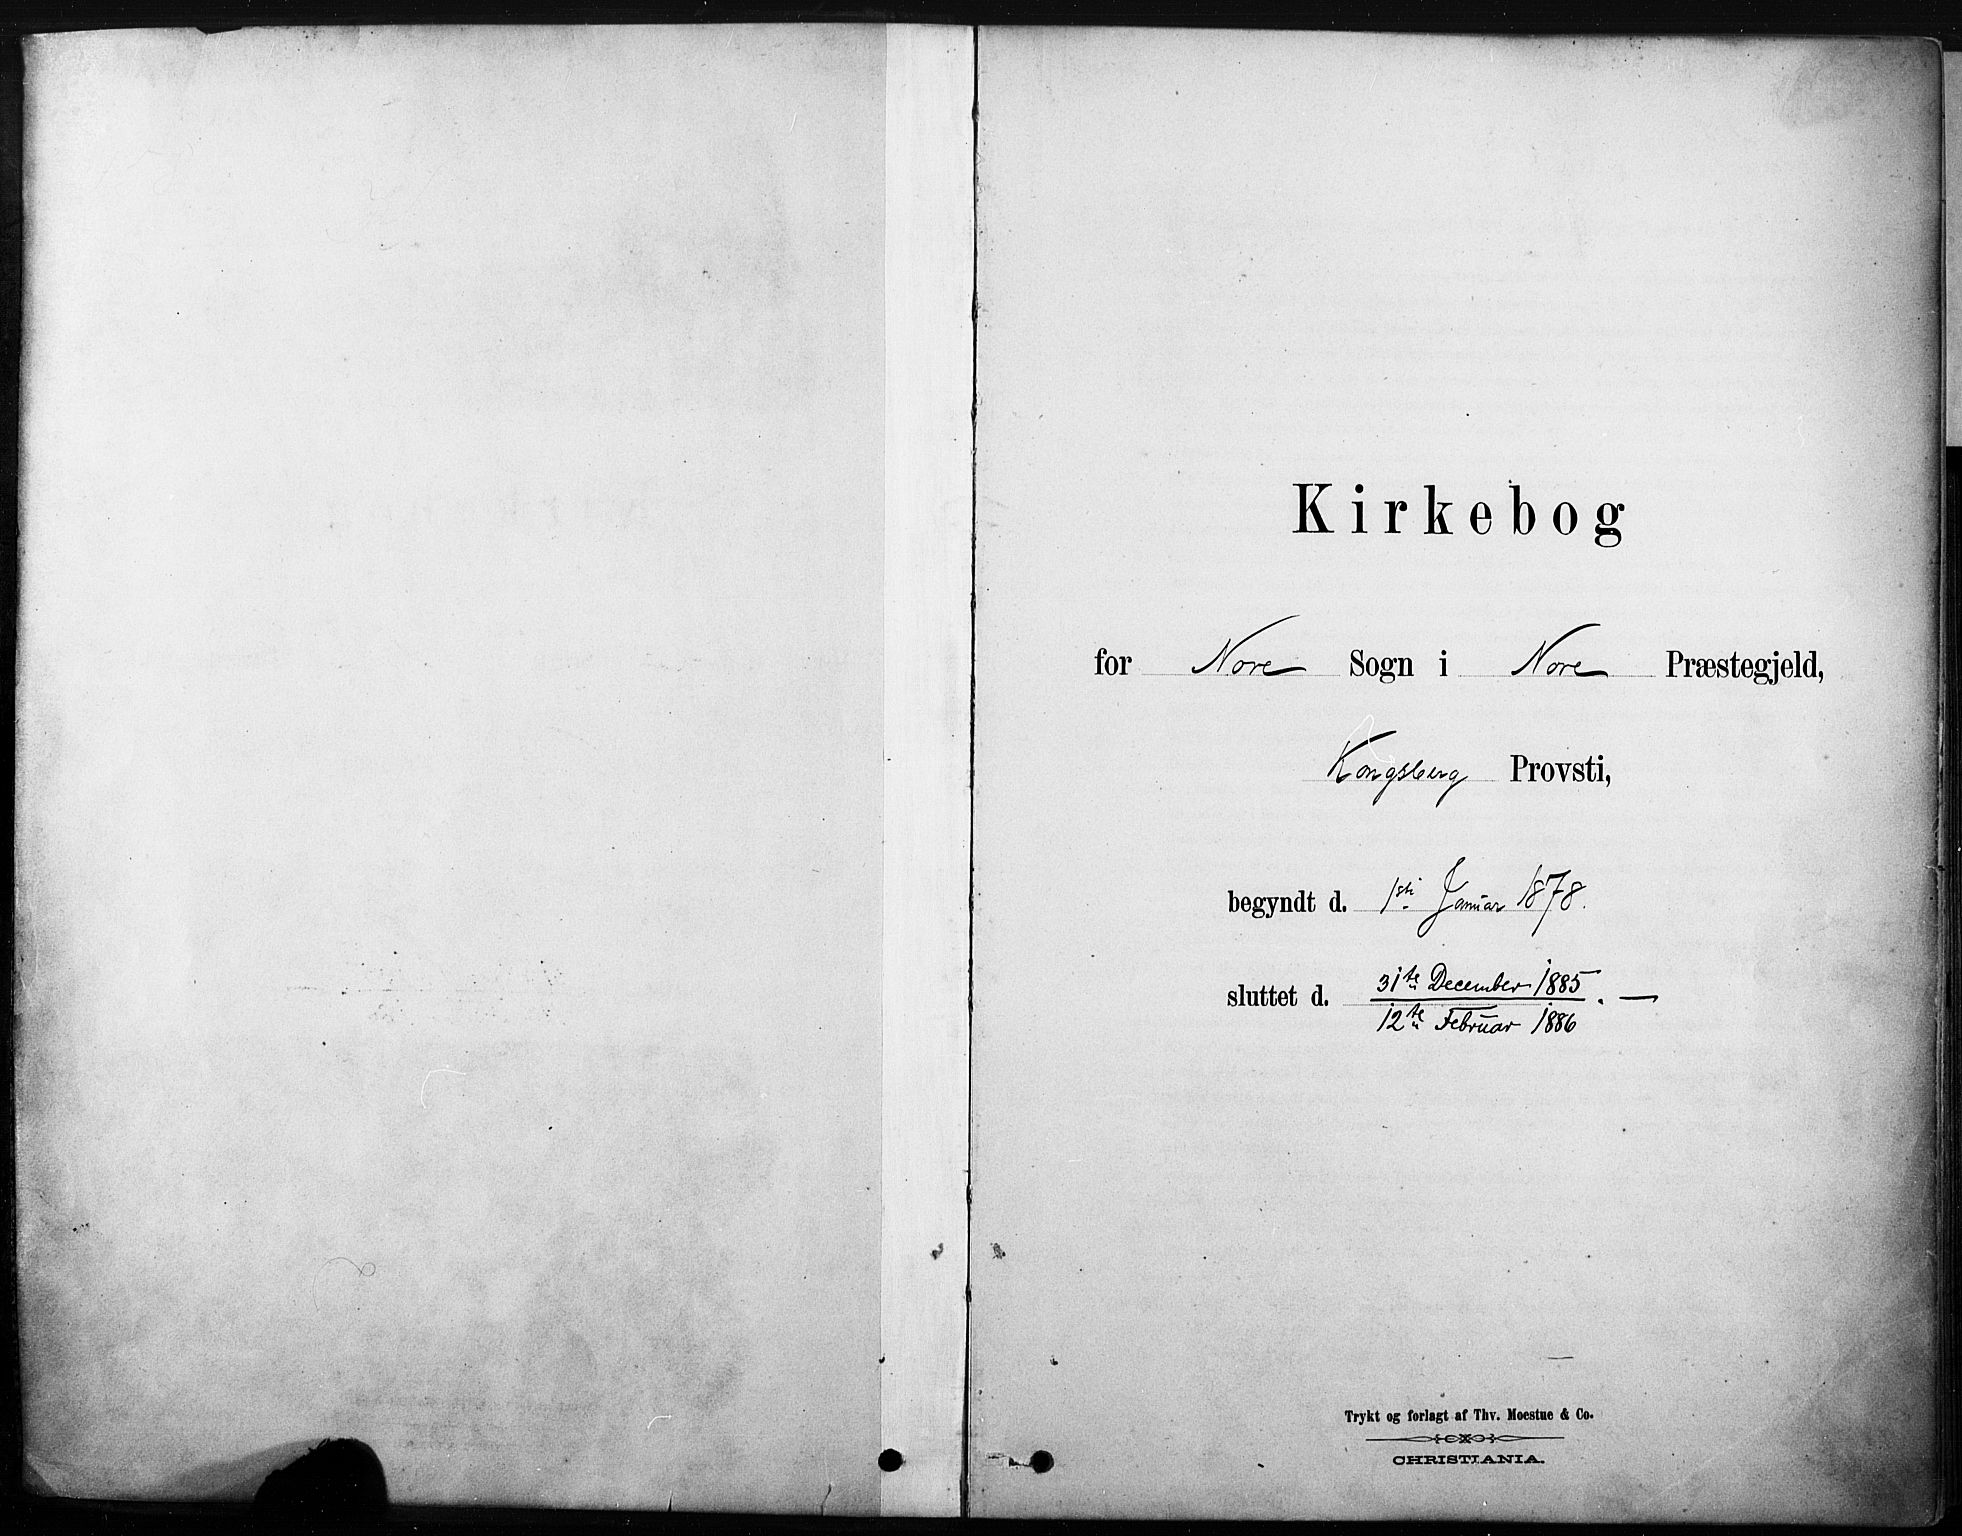 Kirkebog
for Nore Sogn i Nore Præstegjeld,
Kongsberg Provsti,
begyndt d. 1ste Januar 1878.
sluttet d. 31te December 1885. —
12te Februar 1886
Trykt og forlagt af Thv. Moestue & Co.
CHRISTIANIA.